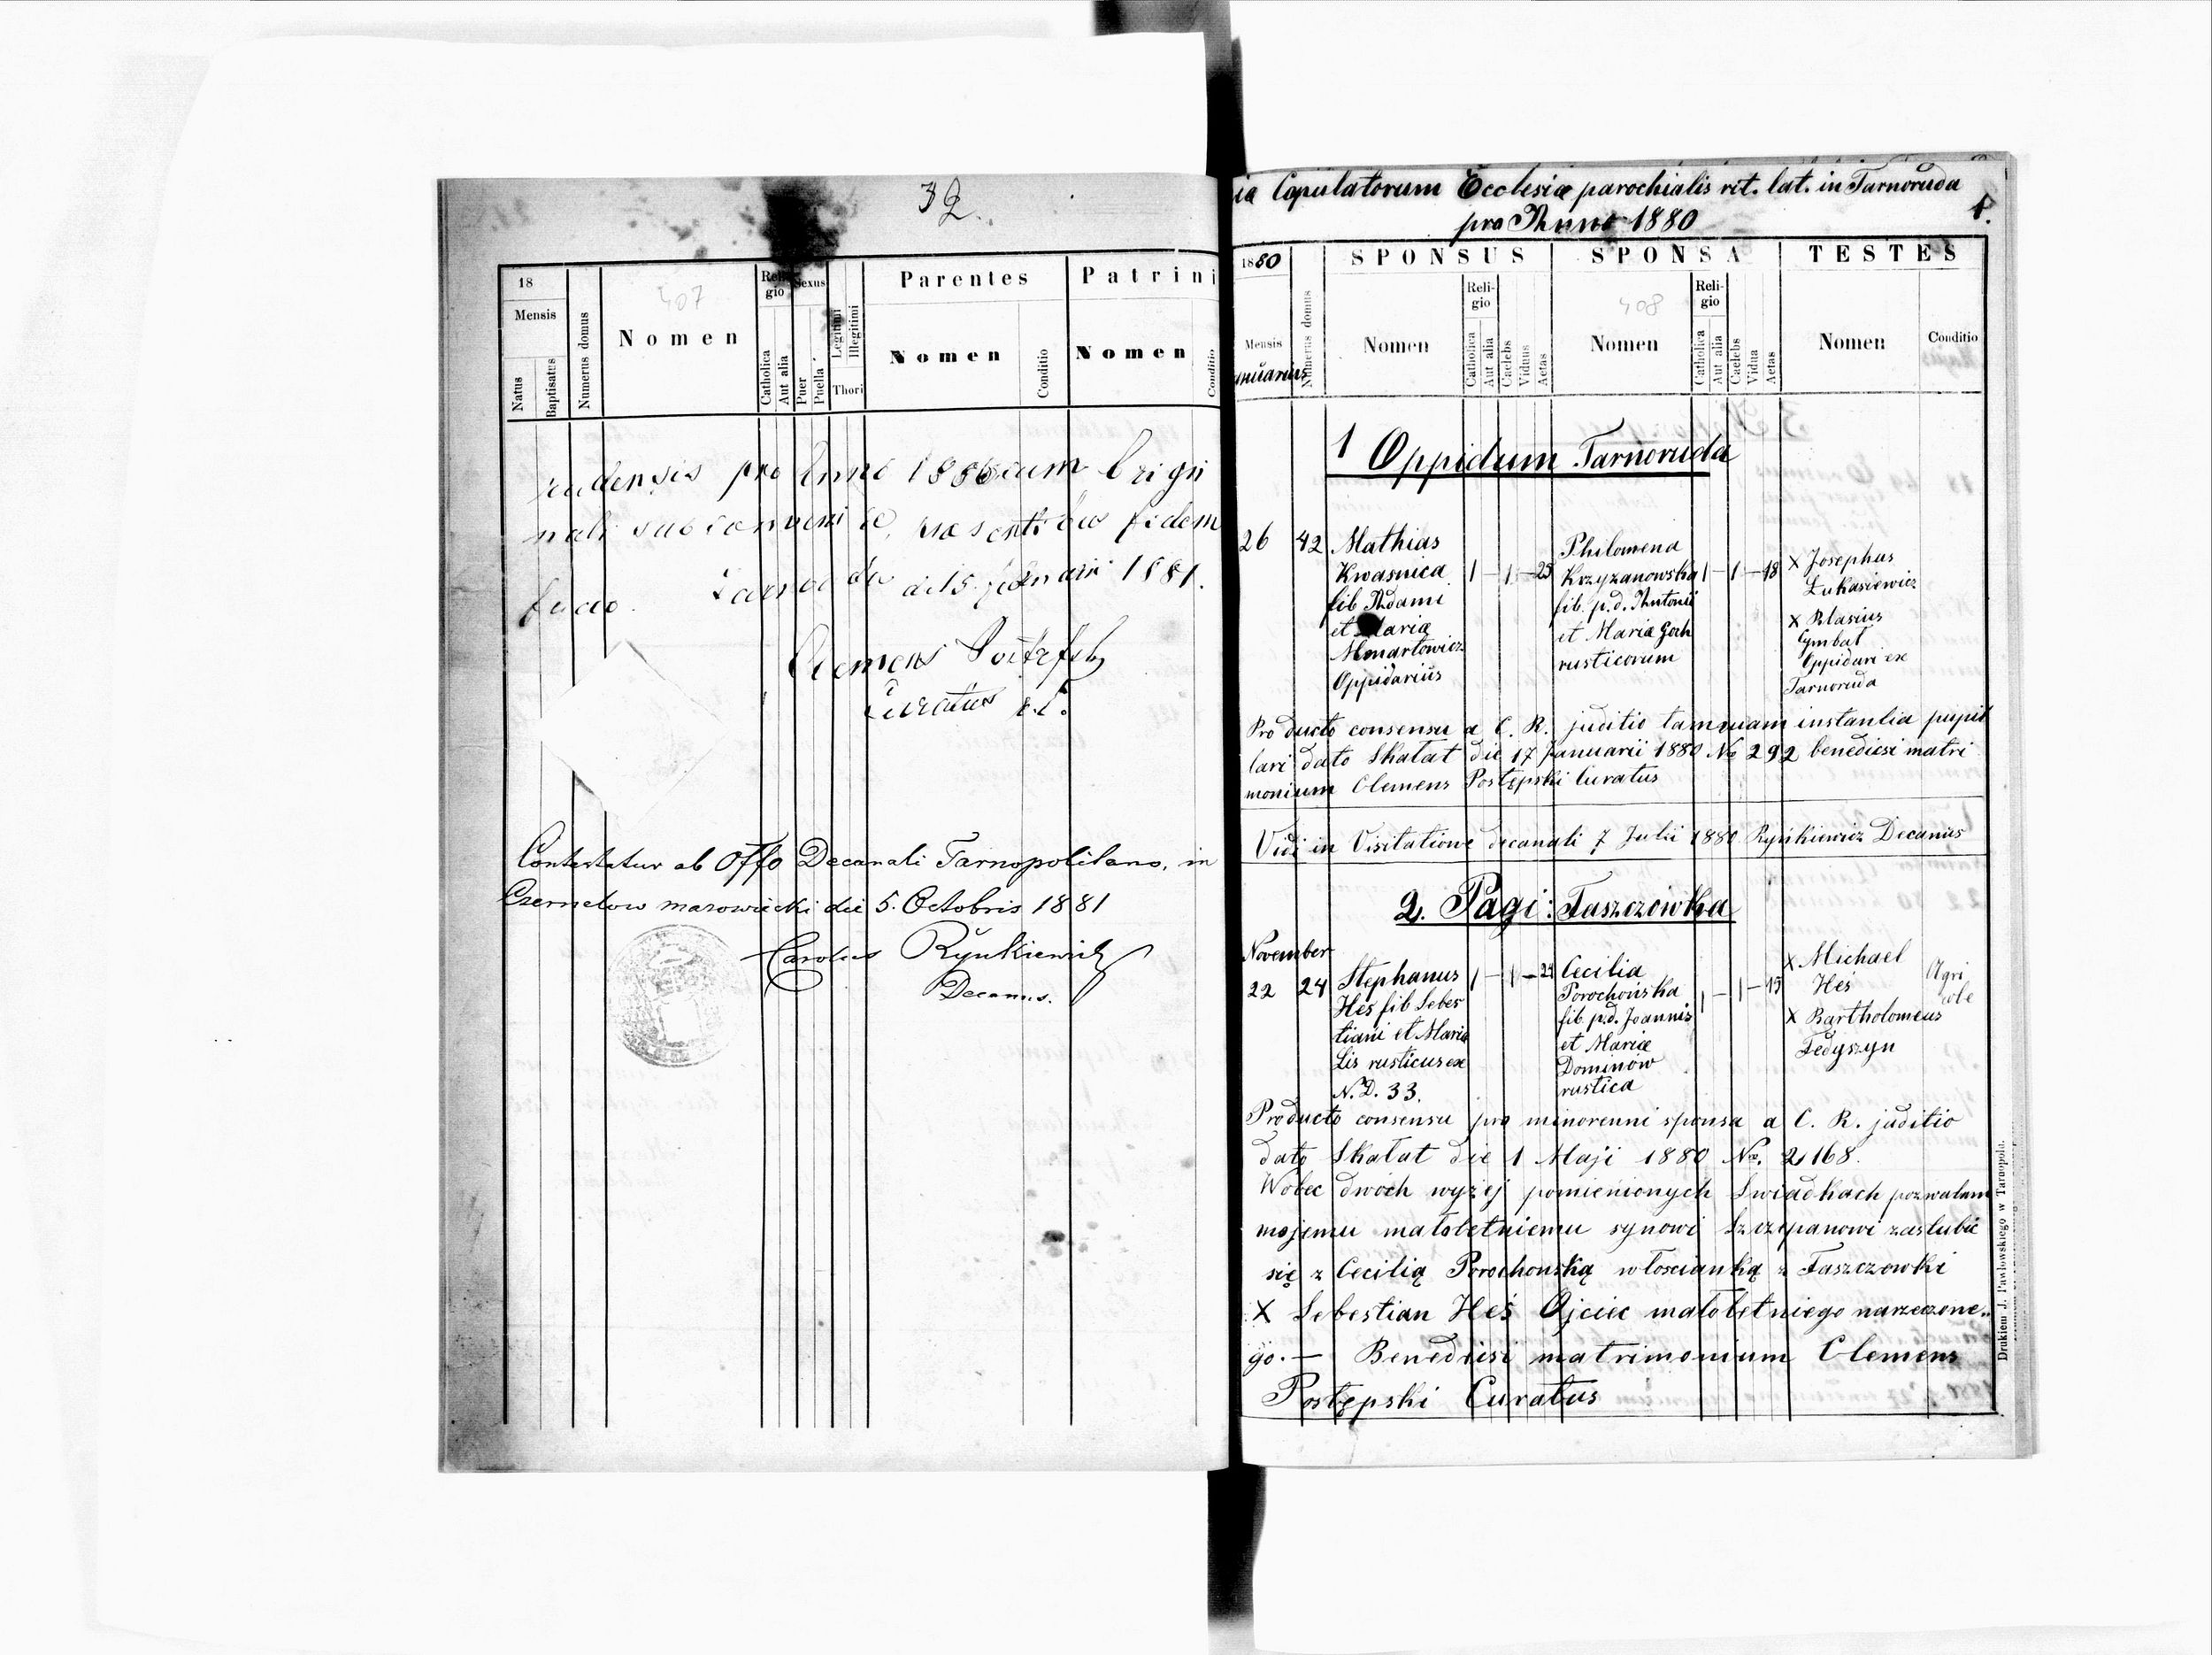 32.
18
Mensis
Natus
Baptisatus
Numerus domus
407
Nomen
Religio
Catholica
Aut alia
Sexus
Puer
Puella
Legitimi
Illegitimi
Thori
Parentes
Nomen
Conditio
Patrini
Nomen
Conditio
rudensis pro Anno 1880 cum Origi
nali sua convenire, praesentibus fidem
facio. Tarnoruda d. 15 Januarii 1881.
Clemens Postępski
Curatus r. l.
Contestatur ab Offo Decanali Tarnopolitano, in
Czernelow mazowiecki die 5. Octobris 1881
Carolus Rynkiewicz
Decanus.
ia Copulatorum Ecclesiæ parochialis rit. lat. in Tarnoruda
pro Anno 1880
1.
1880
Mensis
anuarius
Numerus domus
SPONSUS
Nomen
Religio
Catholica
Aut alia
Caelebs
Vidus
Aetas
SPONSA
408
Nomen
Religio
Catholica
Aut alia
Caelebs
Vidua
Aetas
TESTES
Nomen
Conditio
1 Oppidum Tarnoruda
26 42 Mathias
Kwasnica
fil Adami
et Mariæ
Monartowicz
Oppidarius
1 – 1 – 25
Philomena
Krzyzanowska
fil. p.d. Antonii
et Maria Goch
rusticorum
1 – 1 – 18
X Josephus
Łukasiewicz
X Blasius
Cymbal
Oppidari ex
Tarnoruda
Producto consensu a C. R. juditio tamquam instantia pupil
lari dato Skałat die 17 Januarii 1880 No 292 benedixi matri
monium Clemens Postępski Curatus
Vidi in Visitatione decanali 7 Julii 1880 Rynkiewicz Decanus
2. Pagi: Faszczówka
November
22 24 Stephanus
Heś fil Sebes
tiani et Maria
Lis rusticus ex
N.D. 33.
1 – 1 – 24
Cecilia
Porochońska
fil. p.d. Joannis
et Mariæ
Dominów
rustica
1 – 1 – 19
X Michael
Heś
X Bartholomeus
Fedyszyn
Agri
colæ
Producto consensu pro minorenni sponsa a C. R. juditio
dato Skałat die 1 Maji 1880 No. 2168.
Wobec dwóch wyżej pomienionych Swiadkach pozwalam
mojemu małoletniemu synowi Szczepanowi zaslubic
się z Cecilią Porochonską włoscianką z Faszczowki
X Sebestian Heś Ojciec małoletniego narzeczone..
go. — Benedixi matrimonium Clemens
Postępski Curatus
Drukiem J. Pawłowskiego w Tarnopolu.